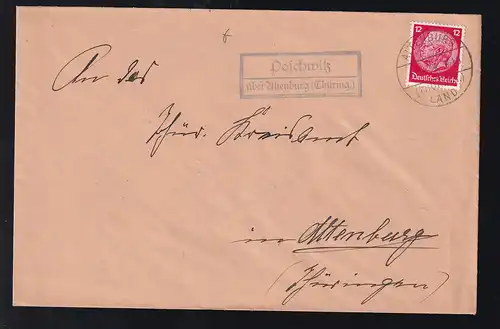 12 12
Deutsches Reich
ALTENBURG
LAND
Poschwitz
über Altenburg (Thüring.)
An das
Thür. Kreisamt
in Altenburg
(Thüringen)